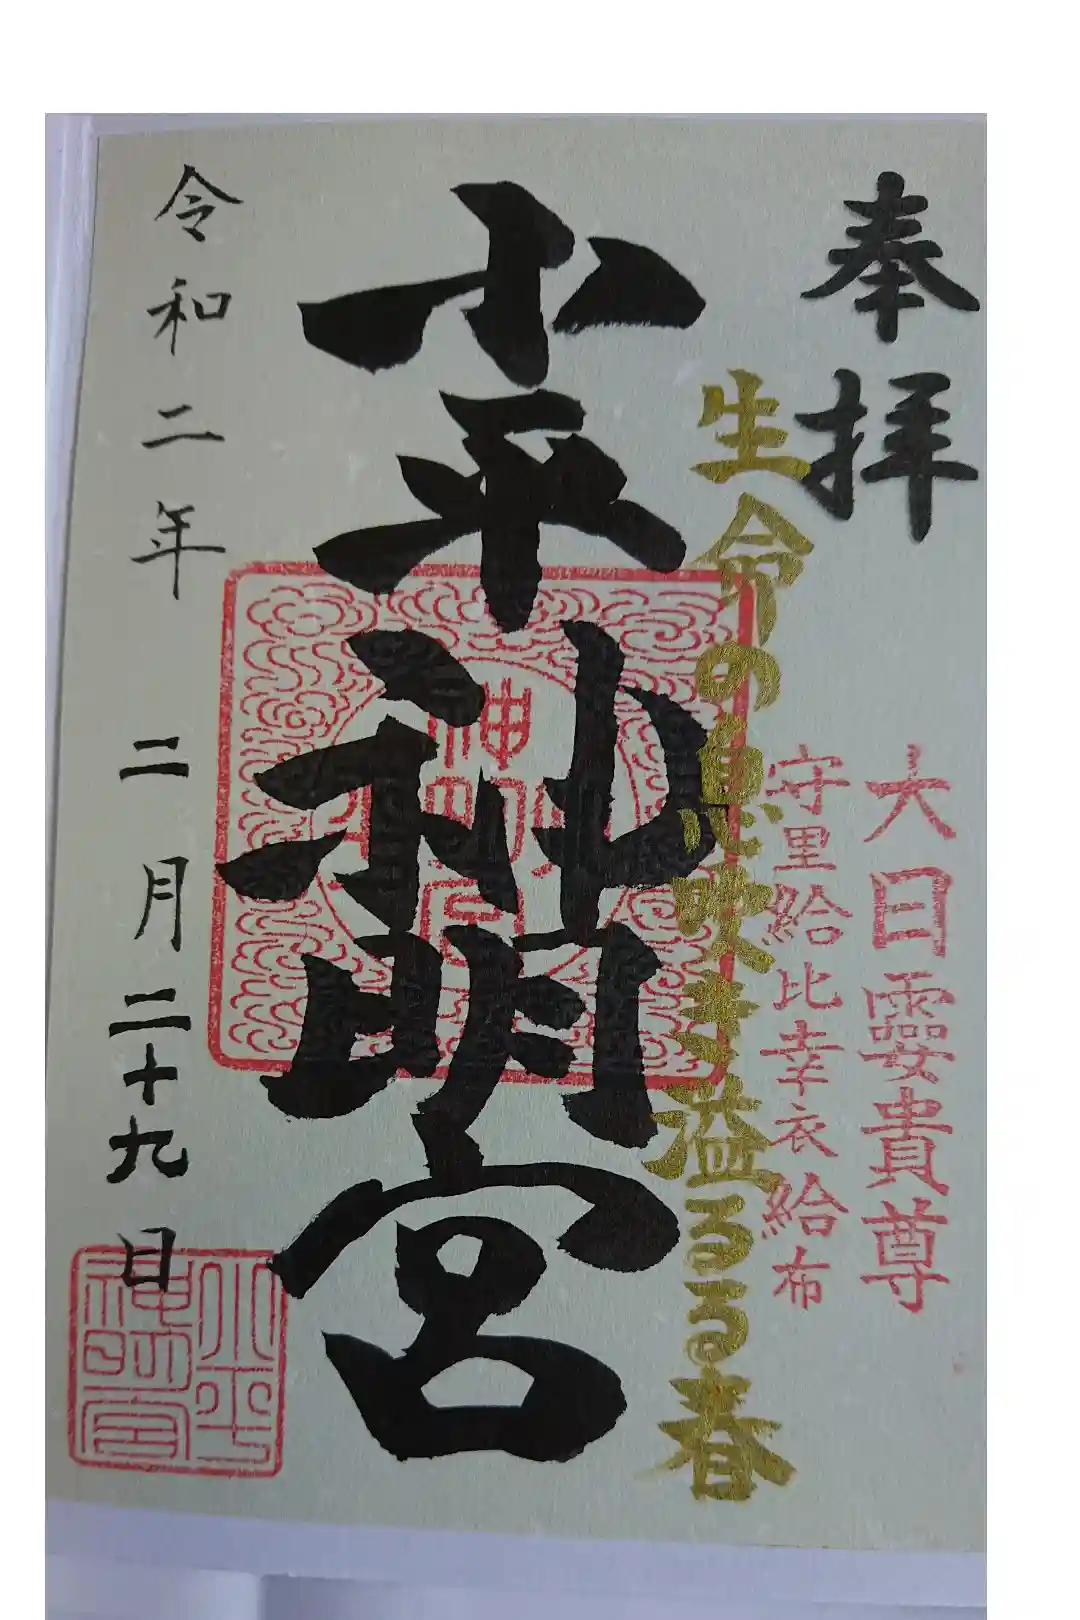 奉拝
大日孁貴尊
守里給比幸衣給布
生命の息吹き溢るる春
小平神明宮
令和二年
二月二十九日
小平
神明宮